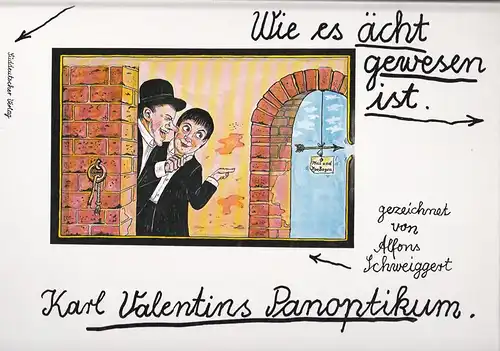 Wie es ächt
gewesen
ist.
Süddeutscher Verlag
gezeichnet
von
Alfons
Schweiggert
Karl Valentins Panoptikum.